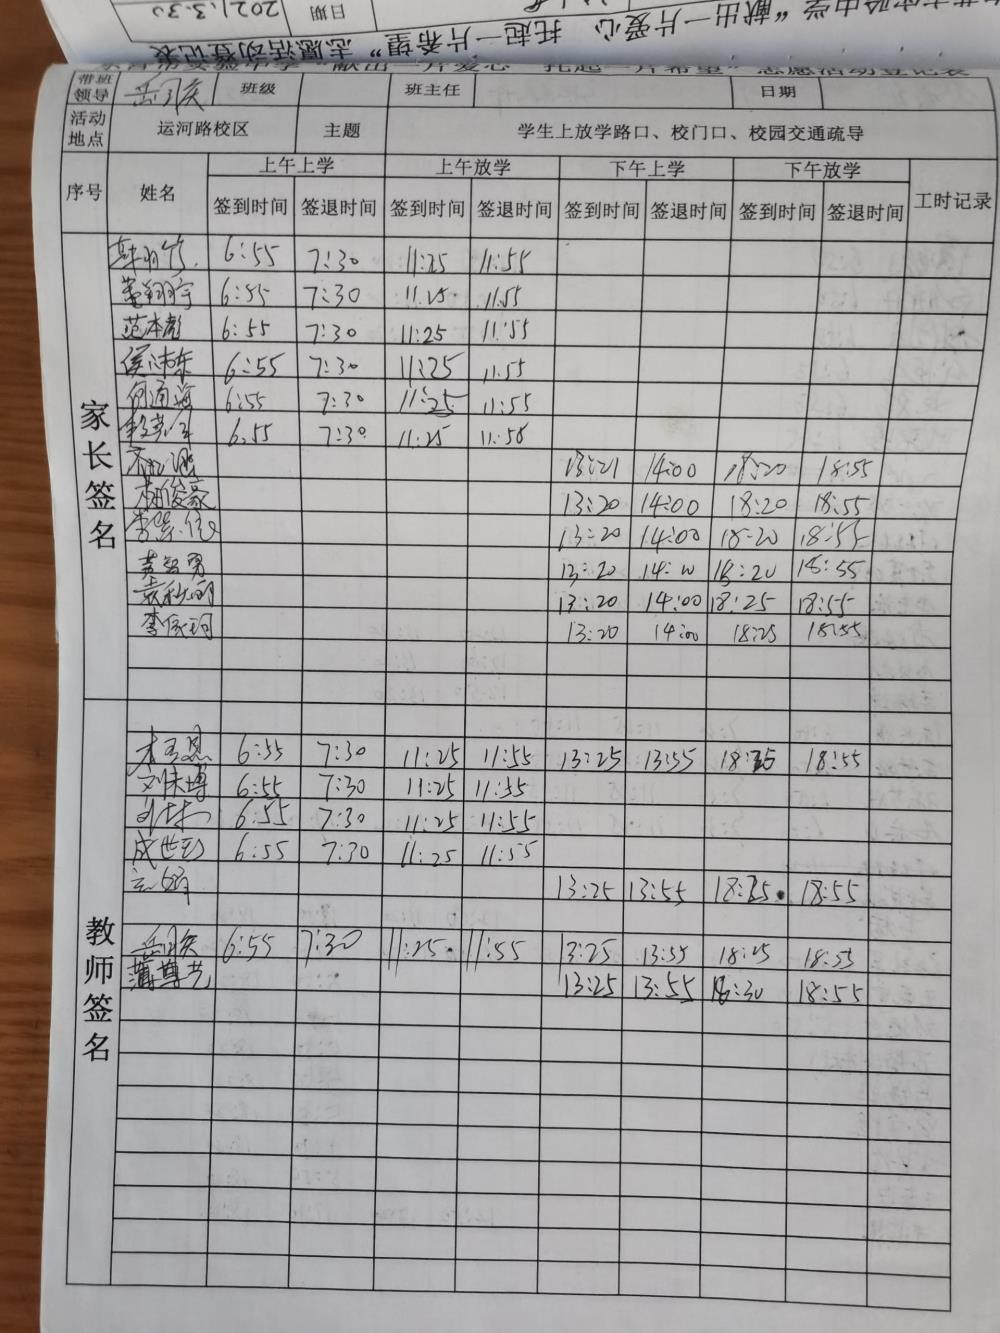 2021.3.30
日期
"献出一片爱心 托起一片希望"志愿活动登记表
"献出一片爱心 托起一片希望"志愿活动登记表
带班领导 班级 班主任 日期
活动地点 运河路校区 主题 学生上放学路口、校门口、校园交通疏导
序号 姓名 上午上学 上午放学 下午上学 下午放学 工时记录
签到时间 签退时间 签到时间 签退时间 签到时间 签退时间 签到时间 签退时间
家长签名
6:55 7:30 11:25 11:55
董翔宇 6:55 7:30 11.25 11.55
范本彪 6:55 7:30 11:25 11:55
6:55 7:30 11:25 11:55
何通海 6:55 7:30 11:25 11:55
6.55 7:30 11:25 11.56
13:21 14:00 18:20 18:55
胡俊豪 13:20 14:00 18:20 18:55
13:20 14:00 18-20 18:55
黄智勇 13:20 14:00 18:20 18:55
13:20 14:00 18:25 18:55
李保珂 13:20 14:00 18:25 18:55
教师签名
6:55 7:30 11:25 11:55 13:25 13:55 18:25 18:55
刘庆博 6:55 7:30 11:25 11:55
6:55 7:30 11:25 11:55
6:55 7:30 11:25 11:55
13:25 13:55 18:25 18:55
6:55 7:30 11:25 11:55 13:25 13:55 18:25 18:55
蒲尊艺 13:25 13:55 18:30 18:55